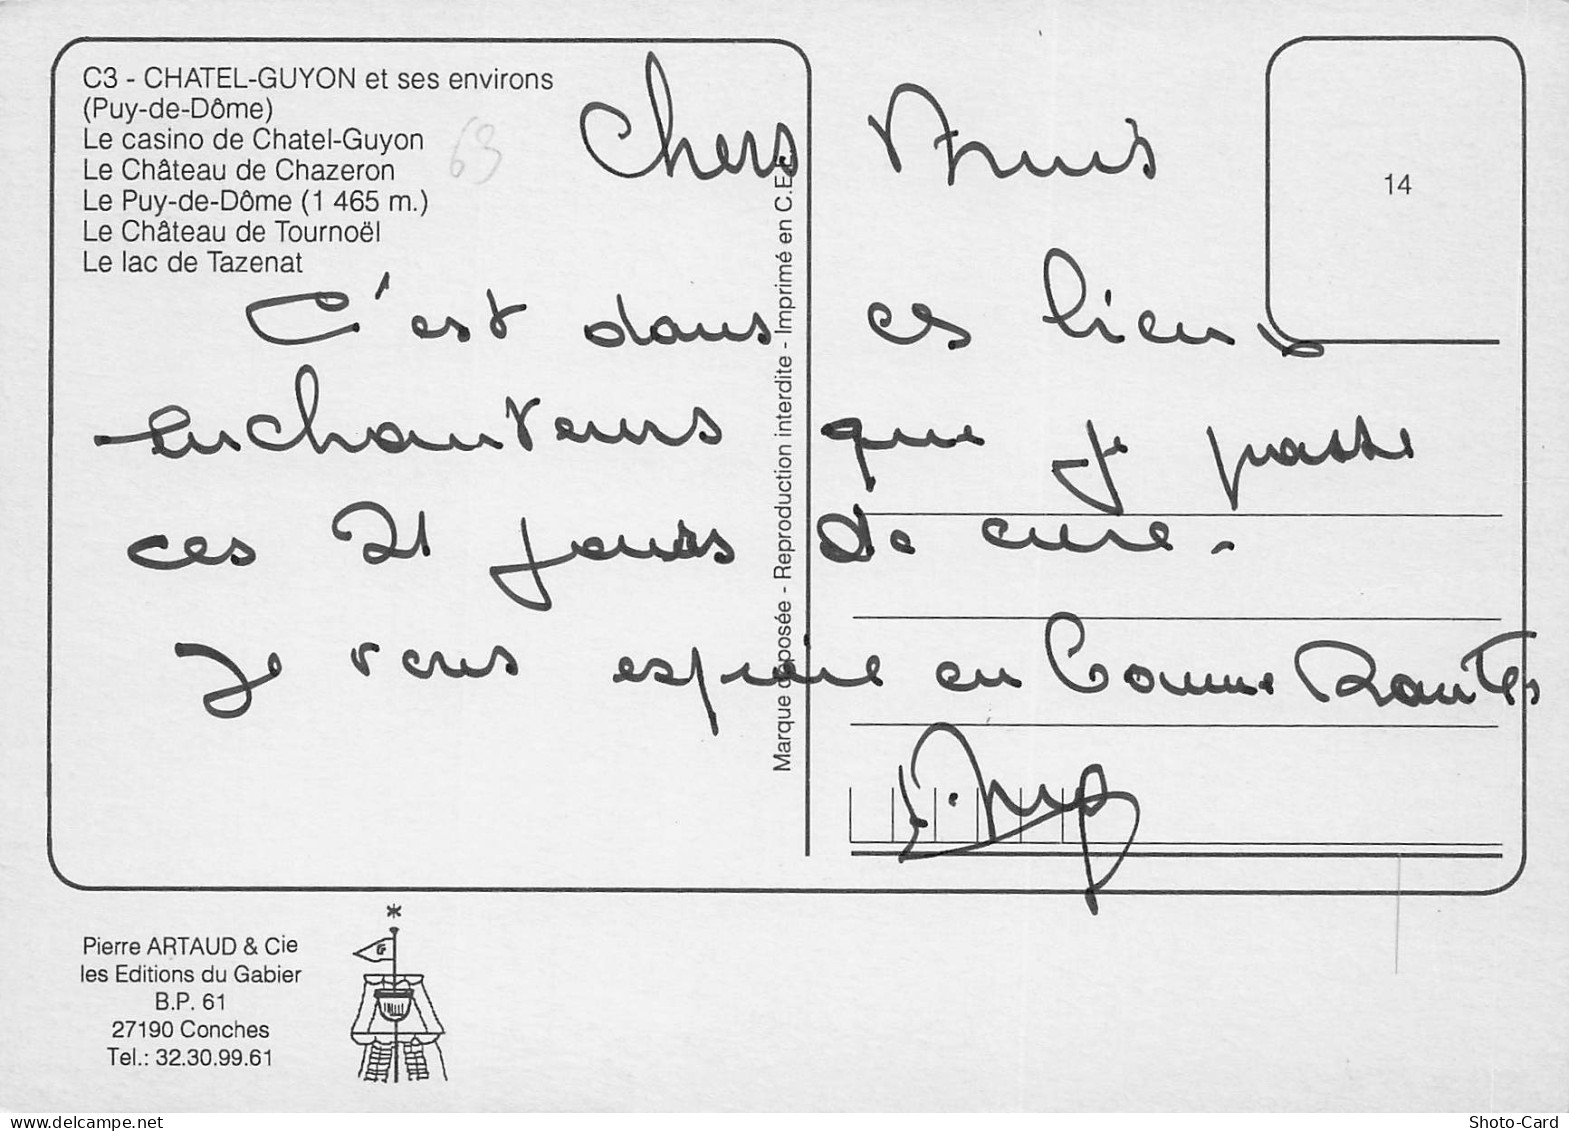 C3 - CHATEL-GUYON et ses environs
(Puy-de-Dôme)
Le casino de Chatel-Guyon
Le Château de Chazeron
Le Puy-de-Dôme (1 465 m.)
Le Château de Tournoël
Le lac de Tazenat
63
14
Chers Amis
C'est dans ces lieux
enchanteurs que je passe
ces 21 jours de cure.
Je vous espaire en bonne Santés
Marque déposée - Reproduction interdite - Imprimé en C.E.E.
Pierre ARTAUD & Cie
les Editions du Gabier
B.P. 61
27190 Conches
Tel.: 32.30.99.61
G
Shoto-Card